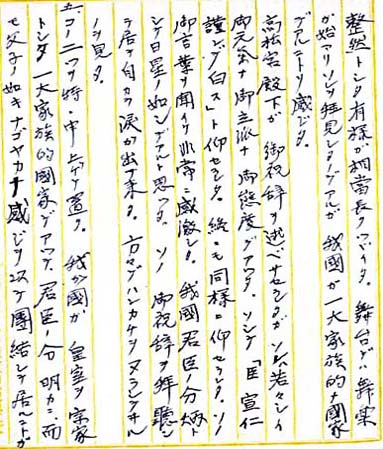 整然トシタ有様ガ相當長クツヾイタ。舞台デハ舞楽
ガ始マリソレヲ拝見シタノデアルガ 我國ガ一大家族的ナ國家
デアルコトヲ感ジタ。
高松宮殿下ガ御祝辞ヲ述ベサセラレタガ ソノ若々シイ
御元気ナ御立派ナ御態度デアツタ。ソシテ「臣宣仁
謹ンデ白ス」ト仰セラレタ。終ニモ同様ニ仰セラレタ。ソノ
御言葉ヲ聞イテ非常ニ感激シタ。我國君臣ノ分炳トシテ
日星ノ如シデアルト思ツタ。ソノ御祝辞ヲ拝聽シ
テ居テ自カラ涙ガ出テ来タ。方々デハンカチヲヌラシテヰル
ノヲ見タ。
コノ二ツヲ特ニ申上ゲテ置ク。我ガ國ガ 皇室ヲ宗家
トシタ一大家族的國家デアツテ、君臣ノ分明カニ、而
モ父子ノ如キナゴヤカナ感ジヲ以テ團結シテ居ルコトガ